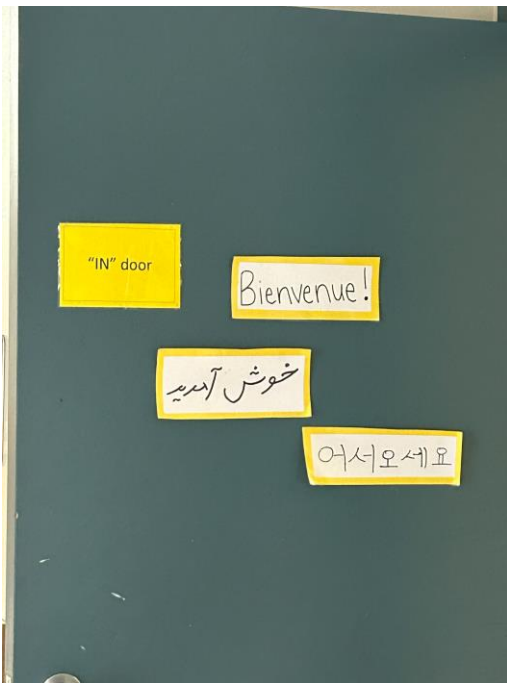 “IN” door
Bienvenue!
خوش آمدید
어서오세요